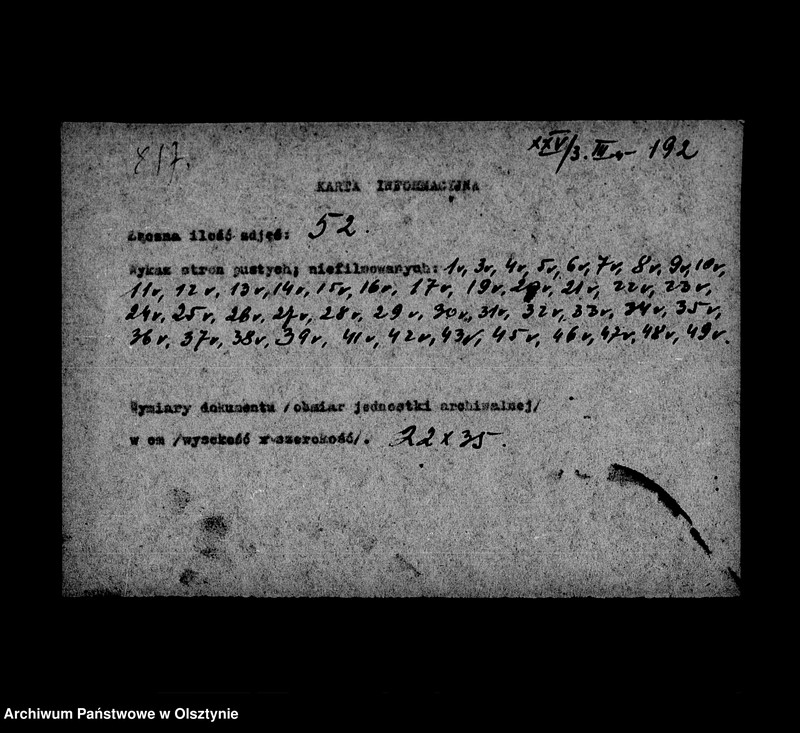 417.
XXV/3. III - 192
KARTA INFORMACYJNA
Łączna ilość zdjęć: 52.
Wykaz stron pustych; niefilmowanych: 1v, 3v, 4v, 5v, 6v, 7v, 8v, 9v, 10v,
11v, 12v, 13v, 14v, 15v, 16v, 17v, 19v, 20v, 21v, 22v, 23v,
24v, 25v, 26v, 27v, 28v, 29v, 30v, 31v, 32v, 33v, 34v, 35v,
36v, 37v, 38v, 39v, 41v, 42v, 43v, 45v, 46v, 47v, 48v, 49v.
Wymiary dokumentu /obmiar jednostki archiwalnej/
w cm /wysokość x szerokość/. 22 x 35.
Archiwum Państwowe w Olsztynie